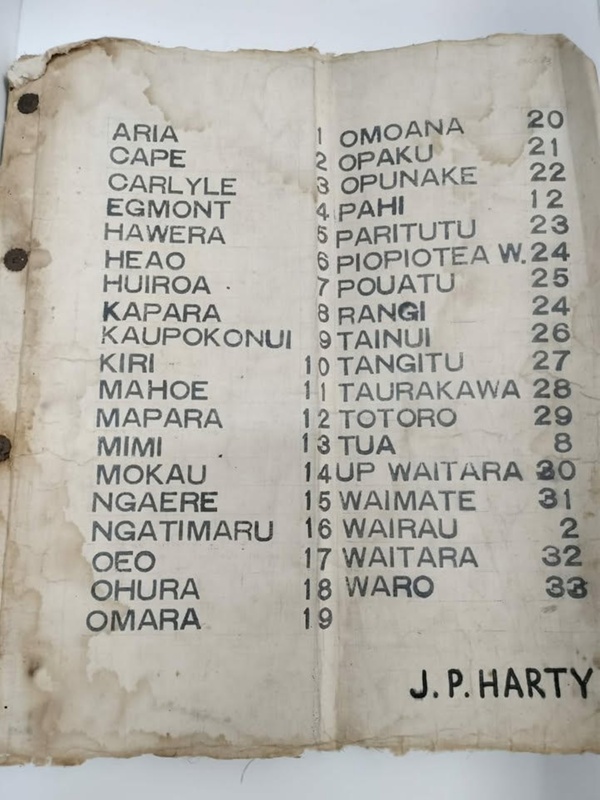 ARIA 1
CAPE 2
CARLYLE 3
EGMONT 4
HAWERA 5
HEAO 6
HUIROA 7
KAPARA 8
KAUPOKONUI 9
KIRI 10
MAHOE 11
MAPARA 12
MIMI 13
MOKAU 14
NGAERE 15
NGATIMARU 16
OEO 17
OHURA 18
OMARA 19
OMOANA 20
OPAKU 21
OPUNAKE 22
PAHI 12
PARITUTU 23
PIOPIOTEA W. 24
POUATU 25
RANGI 24
TAINUI 26
TANGITU 27
TAURAKAWA 28
TOTORO 29
TUA 8
UP WAITARA 30
WAIMATE 31
WAIRAU 2
WAITARA 32
WARO 33
J.P.HARTY